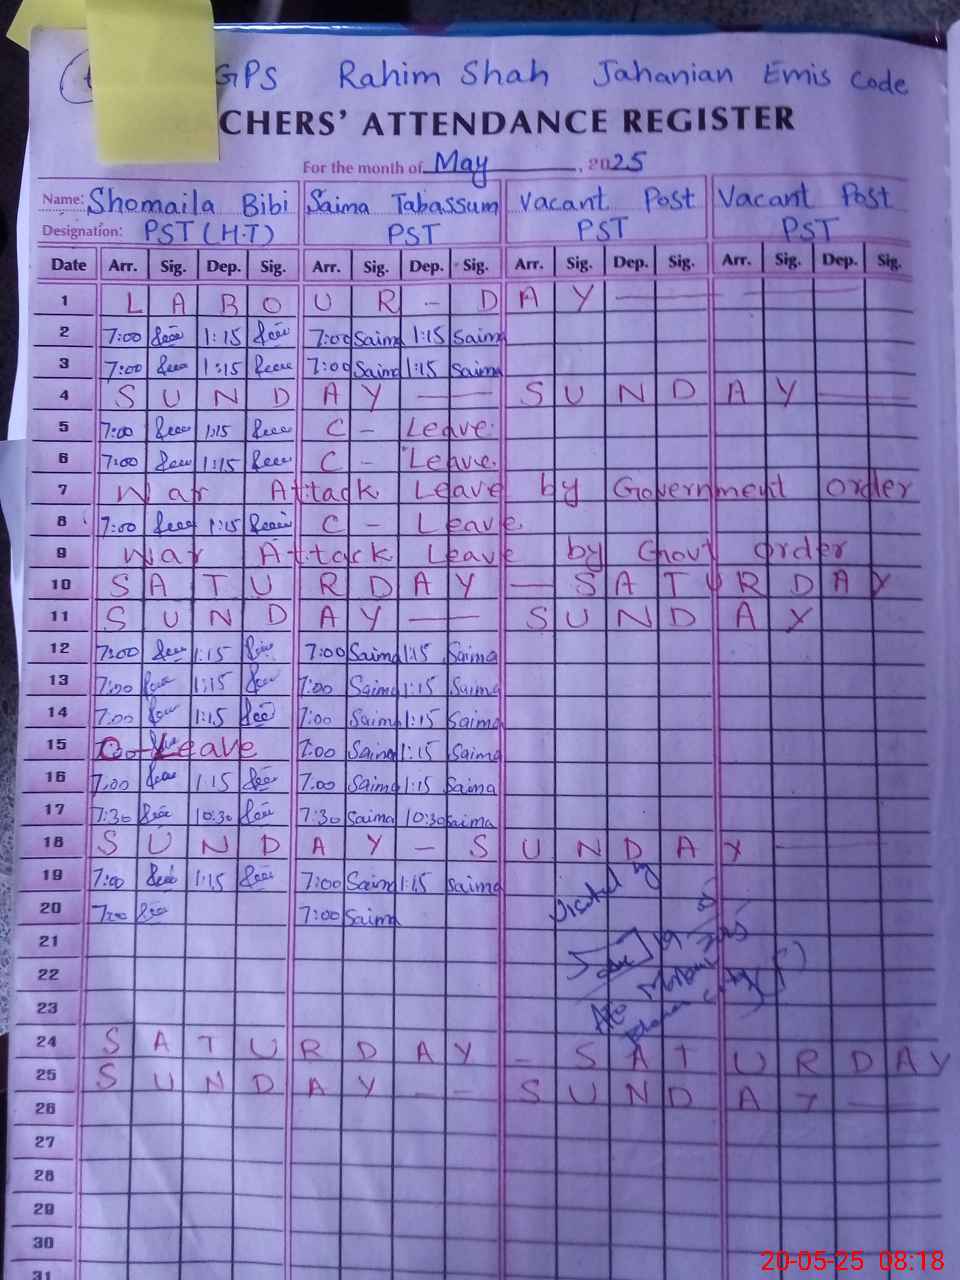 GPS Rahim Shah Jahanian Emis Code
CHERS' ATTENDANCE REGISTER
For the month of May, 2025
Name: Shomaila Bibi Saima Tabassum Vacant Post Vacant Post
Designation: PST (H.T) PST PST PST
Date Arr. Sig. Dep. Sig. Arr. Sig. Dep. Sig. Arr. Sig. Dep. Sig. Arr. Sig. Dep. Sig.
1 L A B O U R - D A Y
2 7:00 1:15 7:00 Saima 1:15 Saima
3 7:00 1:15 7:00 Saima 1:15 Saima
4 S U N D A Y S U N D A Y
5 7:00 1:15 C - Leave.
6 7:00 1:15 C - Leave.
7 War Attack Leave by Government order
8 7:00 1:15 C - Leave
9 War Attack Leave by Govt order
10 S A T U R D A Y - S A T U R D A Y
11 S U N D A Y - S U N D A Y
12 7:00 1:15 7:00 Saima 1:15 Saima
13 7:00 1:15 7:00 Saima 1:15 Saima
14 7:00 1:15 7:00 Saima 1:15 Saima
15 C-Leave 7:00 Saima 1:15 Saima
16 7:00 1:15 7:00 Saima 1:15 Saima
17 7:30 10:30 7:30 Saima 10:30 Saima
18 S U N D A Y - S U N D A Y
19 7:00 1:15 7:00 Saima 1:15 Saima
20 7:00 7:00 Saima
Visited by
21
22
23
24 S A T U R D A Y - S A T U R D A Y
25 S U N D A Y - - S U N D A Y
26
27
28
29
30
31
20-05-25 08:18